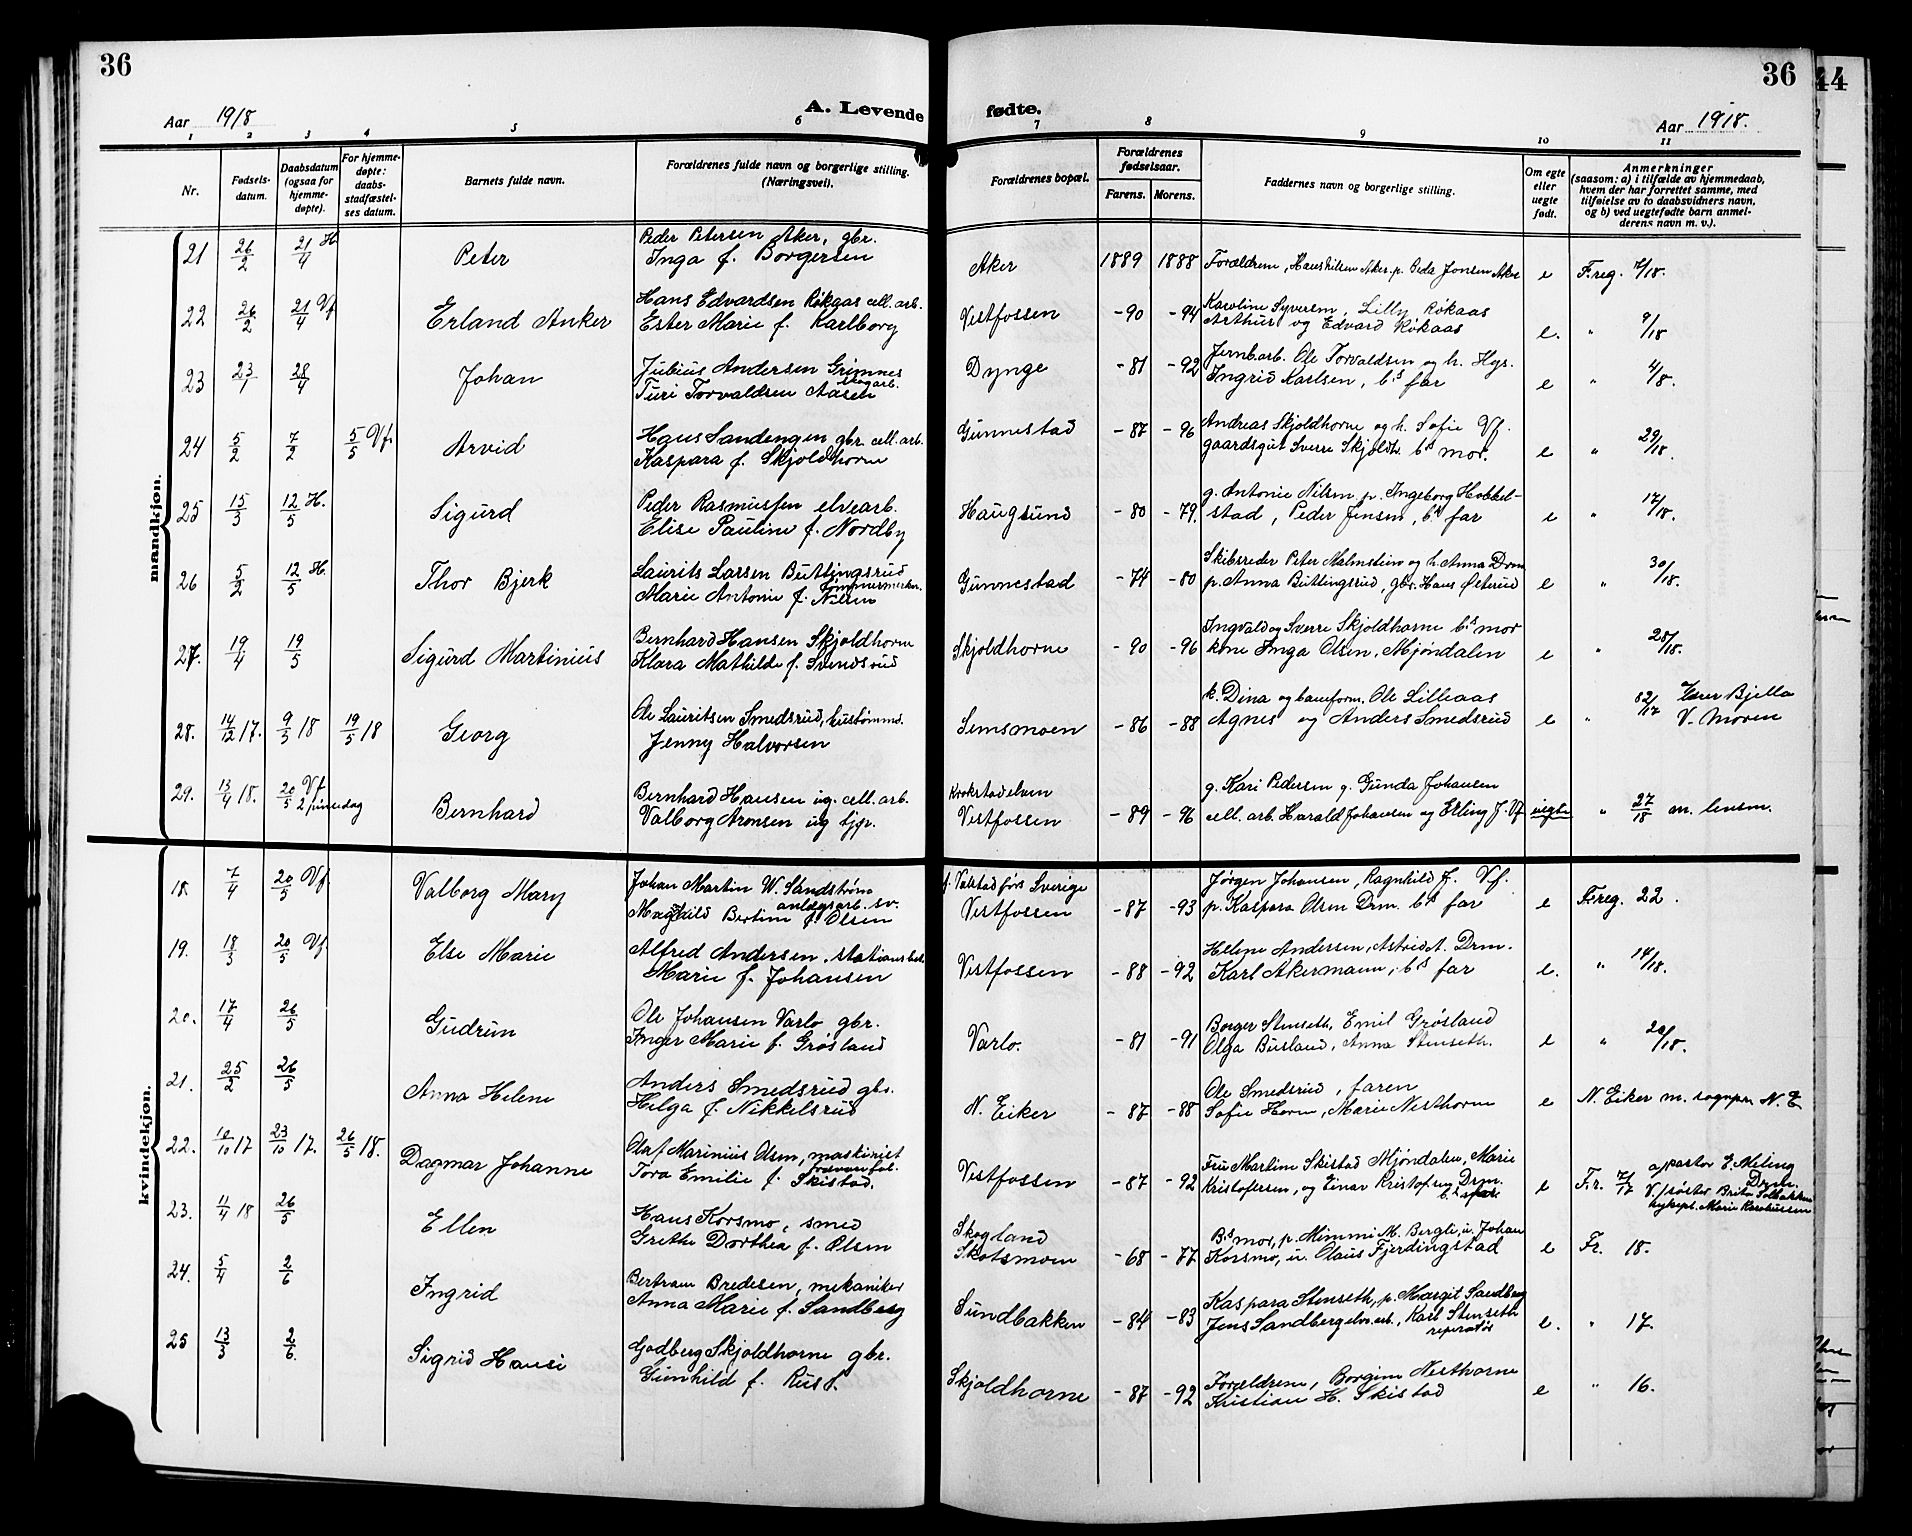 36
36
44
Aar 1918
A. Levende fødte.
Aar 1918.
1 2 3 4 5 6 7 8 9 10 11
Nr.
Fødsels-
datum.
Daabsdatum
(ogsaa for
hjemme-
døpte).
For hjemme-
døpte:
daabs-
stadfæstel-
ses datum.
Barnets fulde navn.
Forældrenes fulde navn og borgerlige stilling.
(Næringsvei).
Forældrenes bopæl.
Forældrenes
fødselsaar.
Farens. Morens.
Faddernes navn og borgerlige stilling.
Om egte
eller
uegte
født.
Anmerkninger
(saasom: a) i tilfælde av hjemmedaab,
hvem der har forrettet samme, med
tilføielse av to daabsvidners navn,
og b) ved uegtefødte barn anmel-
derens navn m. v.).
mandkjøn.
21 26/2 21/4 H Peter
Peder Petersen Aker, gbr.
Inga f. Borgersen
Aker 1889 1888
Forældrene, Aker, p. Jonsen Aker
e F.reg. 7/18.
22 26/2 21/4 Vf Erland Anker
Hans Edvardsen Røkaas cell. arb.
Ester Marie f. Karlborg
Vestfossen -90 -94
Karoline Syversen, Lilly Røkaas
Arthur og Edvard Røkaas
e. " 9/18
23 23/1 28/4 Johan
Julius Andersen Grimnes
skogarb.
Turi Torvaldsen Aasen
Dynge -81 -92
Jernb.arb. Ole Torvaldsen og h. Hgs.
Ingrid Karlsen, b.s far
e "
24 5/2 7/2 5/5 Vf. Arvid
Hans Sandengen gbr. cell. arb.
Kaspara f. Skjoldhorne
Gunnestad -87 -96
Andreas Skjoldhorne og h. Sofie Vf.
gaardsgut Sverre Skjoldh. b.s mor.
e " 29/18.
25 15/3 12/5 H. Sigurd
Peder Rasmussen elvearb.
Elise Pauline f. Nordby
Haugsund -80 -79.
g. Antonie Nilsen p. Ingeborg Hobbel-
stad, Peder Jensen, b.s far
e " 17/18.
26 5/2 12/5 H. Thor Bjerk
Laurits Larsen Buttingsrud
tømmermerker.
Marie Antonie f. Nilsen
Gunnestad -74 -80
Skibsreder Peter Malmstein og h. Anna Drm
p. Anna Buttingsrud, gbr. Hans Østerud
e " 30/18.
27. 19/4 19/5 Sigurd Martinius
Bernhard Hansen Skjoldhorne
Klara Mathilde f. Svendsrud
Skjoldhorne -90 -96
Ingvald og Sverre Skjoldhorne b.s mor
kone Inga Olsen, Mjøndalen
e " 28/18.
28. 14/12 17. 9/3 18 19/5 18 Georg
Ole Lauritsen Smedsrud,
Jenny Halvorsen
Semsmoen -86 -88
k. Dina og baneform. Ole Lilleaas
Agnes og Anders Smedsrud
e " 82/17 Bjella
V. Moren
29. 13/4 18. 20/5 Vf. 2 pinsedag Bernhard
Bernhard Hansen ug. cell. arb.
Valborg Aronsen ug tjp.
Krokstadelven
Vestfossen -89 -96
g. Kari Pedersen g. Gunda Johansen
cell. arb. Harald Johansen og Erling J. Vf
uegte " 27/18 an. lensm.
kvindekjøn.
18. 7/4 20/5 Vf. Valborg Mary
Johan Martin W. Sandstrøm
anlægsarb. sv.
Maghild Bertine f. Olsen
f. Sverige
Vestfossen -87 -93
Jørgen Johansen, Ragnhild J. Vf.
p. Kaspara Olsen Drm. b.s far
e F.reg. 22.
19. 18/3 20/5 Vf. Else Marie
Alfred Andersen, stationsbet.
Marie f. Johansen
Vestfossen -88 -92
Helene Andersen, Astrid A. Drm.
Karl Akermann, b.s far
e. " 14/18.
20. 17/4 26/5 Gudrun
Ole Johansen Varlo gbr.
Inger Marie f. Grøsland
Varlo. -81 -91
Borger Stenseth, Emil Grøsland
Olga Busland, Anna Stenseth.
e " 20/18.
21. 25/2 26/5 Anna Helene
Anders Smedsrud gbr.
Helga f. Nikkelsrud
N. Eiker -87 -88
Ole Smedsrud, faren
Sofie Horne, Marie Nesthorne
e N. Eiker m. sognepr. N. E
22. 10/10 17 23/10 17. 26/5 18. Dagmar Johanne
Olaf Marinius Olsen, maskinist
Tora Emilie f. Skistad.
Vestfossen -87 -92
Fru Martine Skistad Mjøndalen, Marie
Kristofersen, og Einar Kristofsen Drm.
b.s far
e Fr. 71/17 a) pastor E. Meling
Drm.
V. frøster Solbakken
sykepl. Marie
23. 11/4 18 26/5 Ellen
Hans Korsmo, smed
Grethe Dorthea f. Olsen
Skogland
Skotsmoen -68 -77
B.s mor, p. Mimmi M. Bergli, u. Johan
Korsmo, u. Olaus Fjerdingstad
e Fr. 18.
24. 5/4 2/6 Ingrid
Bertram Bredesen, mekaniker
Anna Marie f. Sandberg
Sundbakken -84 -83
Kaspara Stenseth, p. Margit Sandberg
Jens Sandberg elv. arb., Karl Stenseth
reperatør
e. " 17.
25 13/3 2/6. Sigrid Hansi
Godberg Skjoldhorne gbr.
Gunhild f. Rust.
Skjoldhorne -87 -92
Forældrene, Borgine Nesthorne
Kristian H. Skistad
e " 16.